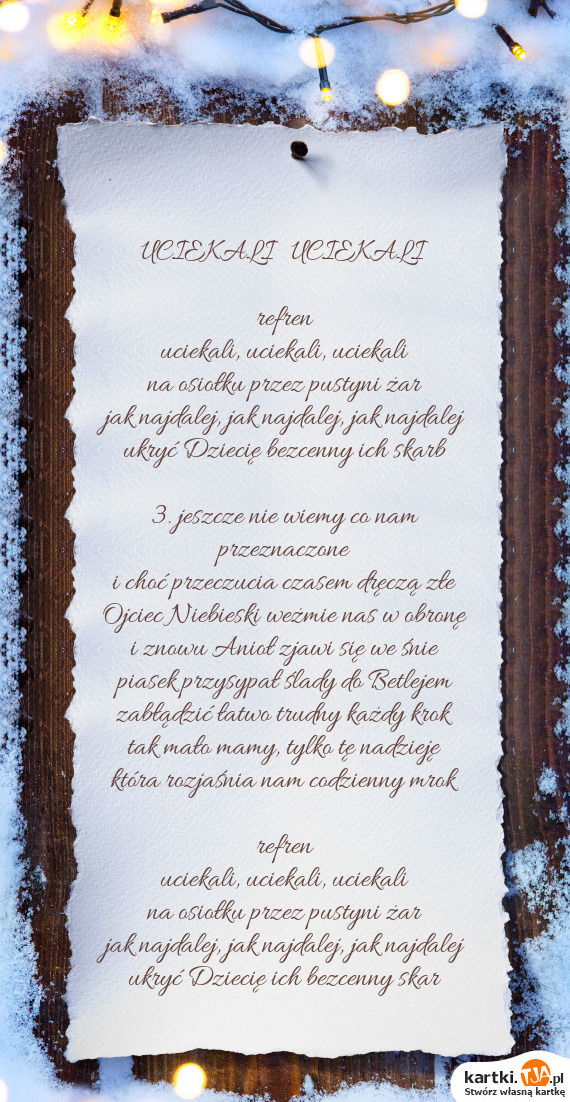 UCIEKALI UCIEKALI
refren
uciekali, uciekali, uciekali
na osiołku przez pustyni żar
jak najdalej, jak najdalej, jak najdalej
ukryć Dziecię bezcenny ich skarb
3. jeszcze nie wiemy co nam
przeznaczone
i choć przeczucia czasem dręczą złe
Ojciec Niebieski weźmie nas w obronę
i znowu Anioł zjawi się we śnie
piasek przysypał ślady do Betlejem
zabłądzić łatwo trudny każdy krok
tak mało mamy, tylko tę nadzieję
która rozjaśnia nam codzienny mrok
refren
uciekali, uciekali, uciekali
na osiołku przez pustyni żar
jak najdalej, jak najdalej, jak najdalej
ukryć Dziecię ich bezcenny skar
kartki.TJA.pl
Stwórz własną kartkę